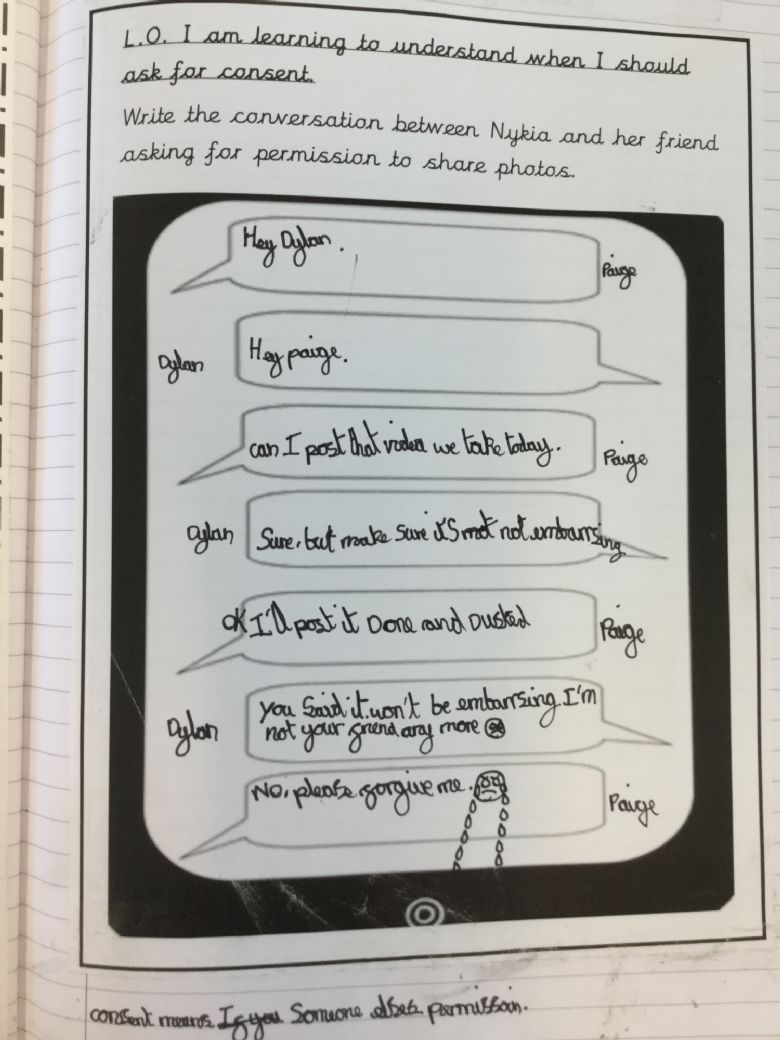 L.O. I am learning to understand when I should
ask for consent.
Write the conversation between Nykia and her friend
asking for permission to share photos.
Hey Dylan.
Paige
Dylan
Hey paige.
can I post that video we take today.
Paige
Dylan
Sure, but make sure it's not not embarrsing
OK I'll post it Done and Dusted
Paige
Dylan
you said it won't be embarrsing I'm
not your friend any more
No, please forgive me.
Paige
consent means If you Someone elses permission.